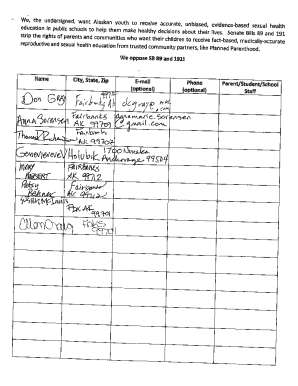 We, the undersigned, want Alaskan youth to receive accurate, unbiased, evidence-based sexual health
education in public schools to help them make healthy decisions about their lives. Senate Bills 89 and 191
strip the rights of parents and communities who want their children to receive fact-based, medically-accurate
reproductive and sexual health education from trusted community partners, like Planned Parenthood.
We oppose SB 89 and 191!
Name City, State, Zip E-mail (optional) Phone (optional) Parent/Student/School Staff
Don Gray Fairbanks AK
Anna Sorensen Fairbanks AK 99709 annamarie.sorensen@gmail.com
Fairbanks AK 99702
Genevieve Holubik 1700 Anchorage 99504
Mary Fairbanks AK 99712
Patsy Fairbanks AK 99712
FBX AK 99701
Ellen Craig